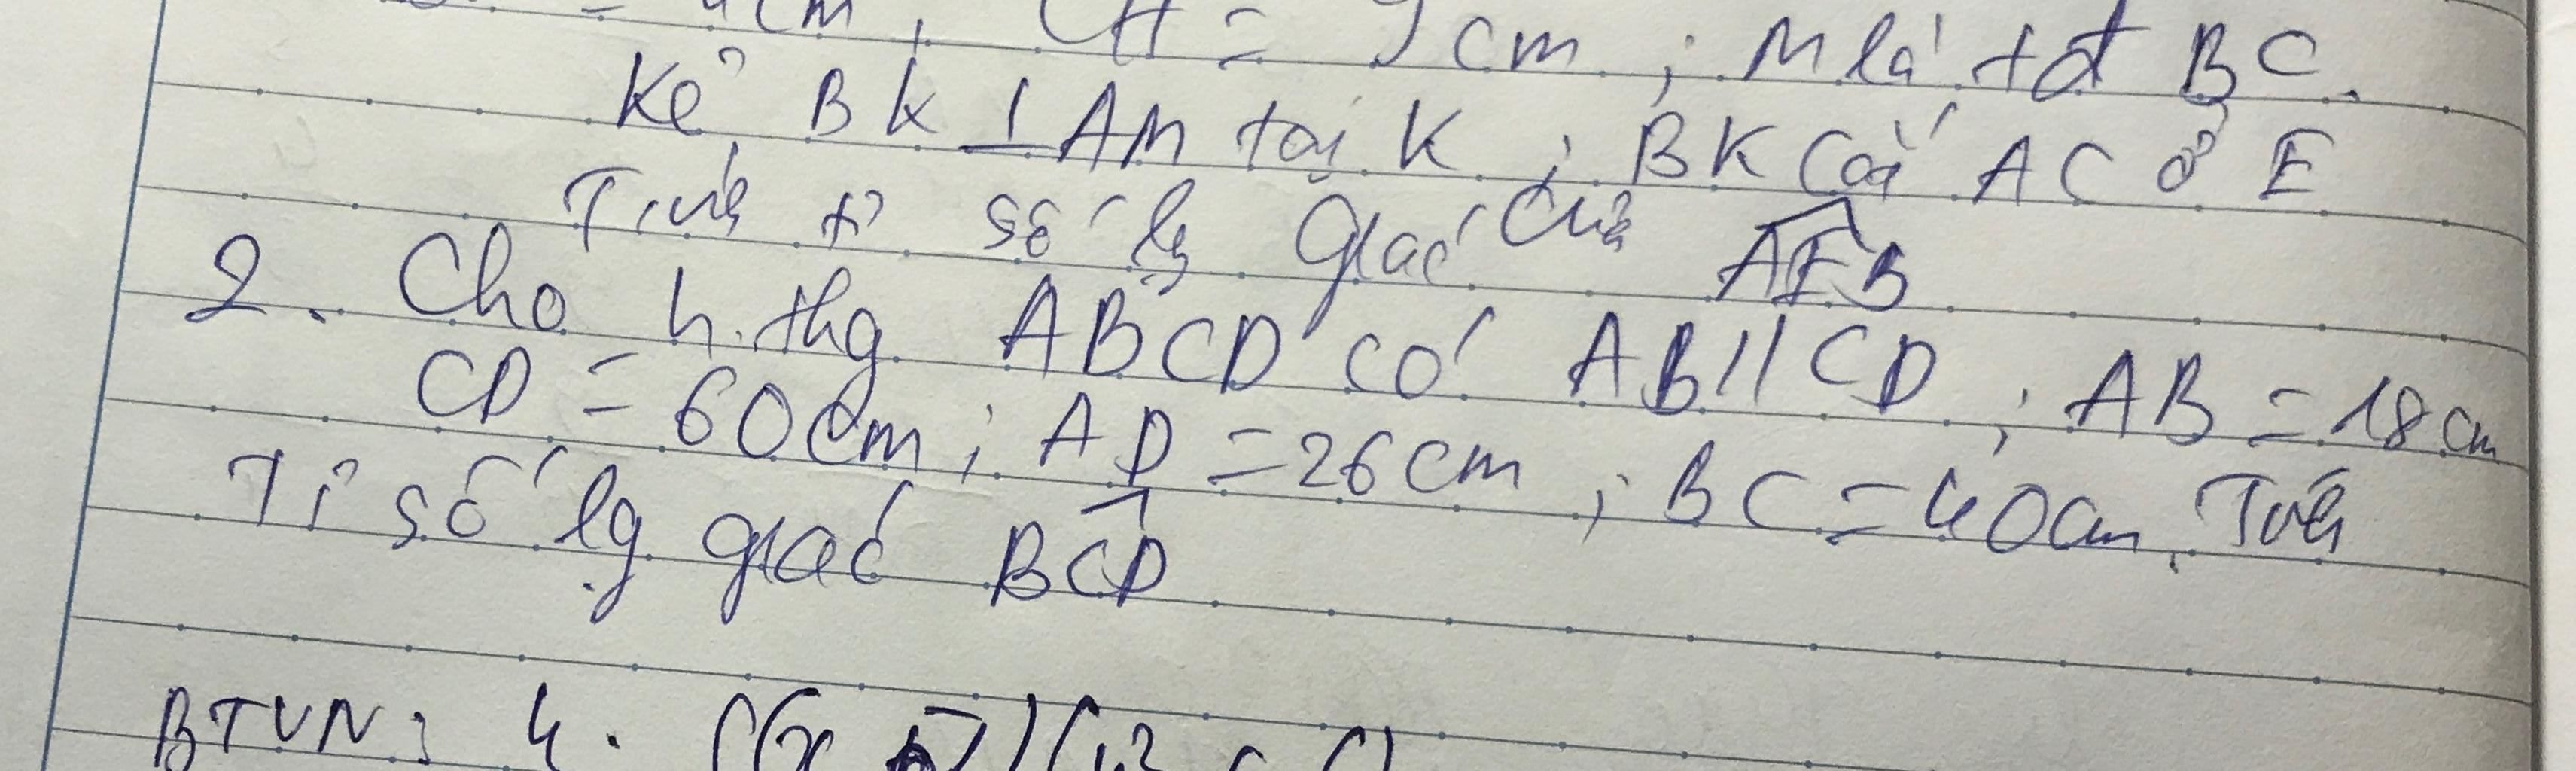 = 4cm ; CH = 9cm ; M là tđ BC.
Kẻ BK ⊥ AM tại K ; BK cắt AC ở E
Tính tỉ số lg giác của AEB
2. Cho h.thg ABCD có AB // CD ; AB = 18cm
CD = 60cm ; AD = 26cm ; BC = 40cm. Tính
Tỉ số lg giác BCD
BTVN : 4.